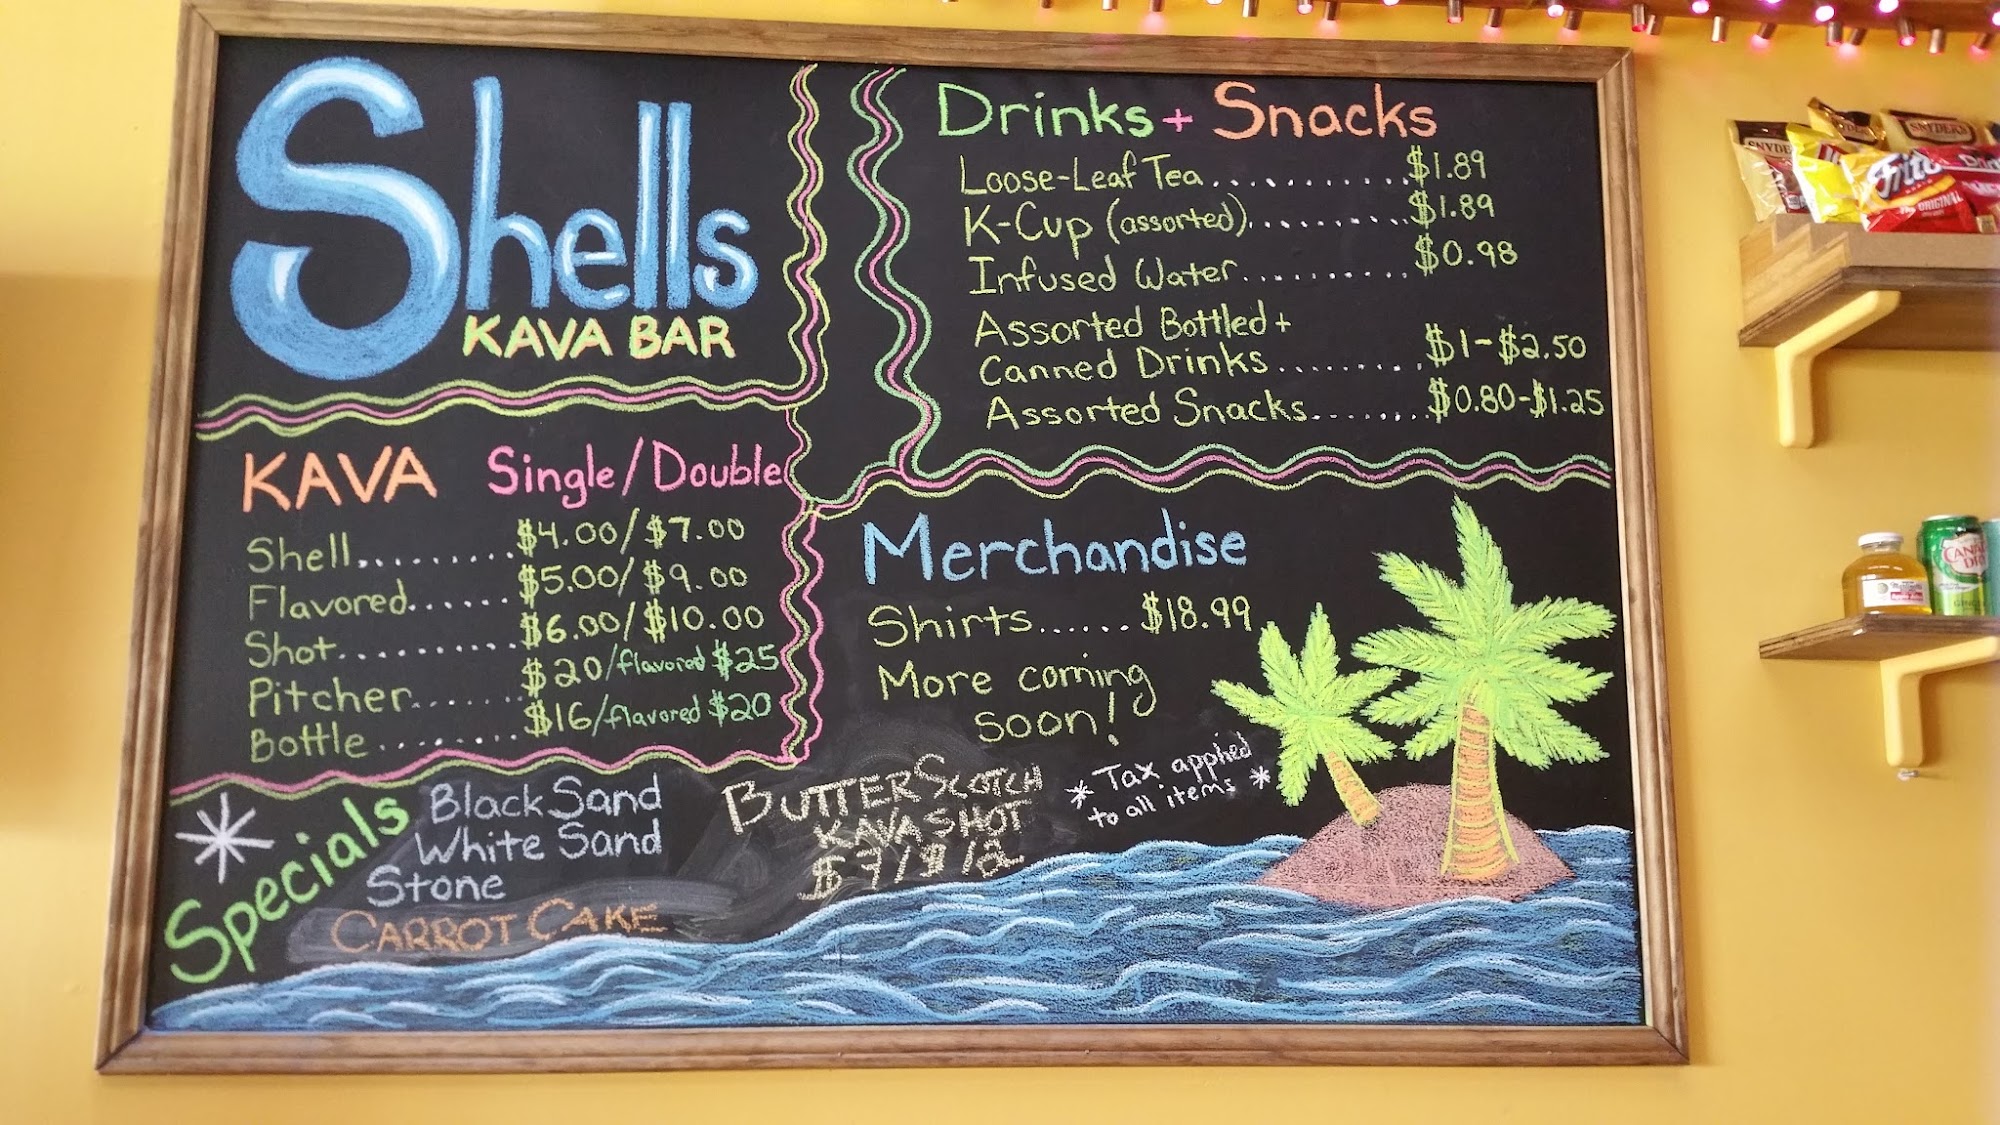 Shells
KAVA BAR
KAVA Single/Double
Shell......... $4.00/$7.00
Flavored...... $5.00/$9.00
Shot.......... $6.00/$10.00
Pitcher....... $20/flavored $25
Bottle......... $16/flavored $20
Drinks + Snacks
Loose-Leaf Tea............ $1.89
K-Cup (assorted).......... $1.89
Infused Water.......... $0.98
Assorted Bottled +
Canned Drinks......... $1-$2.50
Assorted Snacks........ $0.80-$1.25
Merchandise
Shirts...... $18.99
More coming
soon!
* Tax applied
to all items *
* Specials
Black Sand
White Sand
Stone
CARROT CAKE
BUTTERSCOTCH
KAVA SHOT
$7/$12
SNYDER'S
Fritos
ORIGINAL
CANADA
DRY